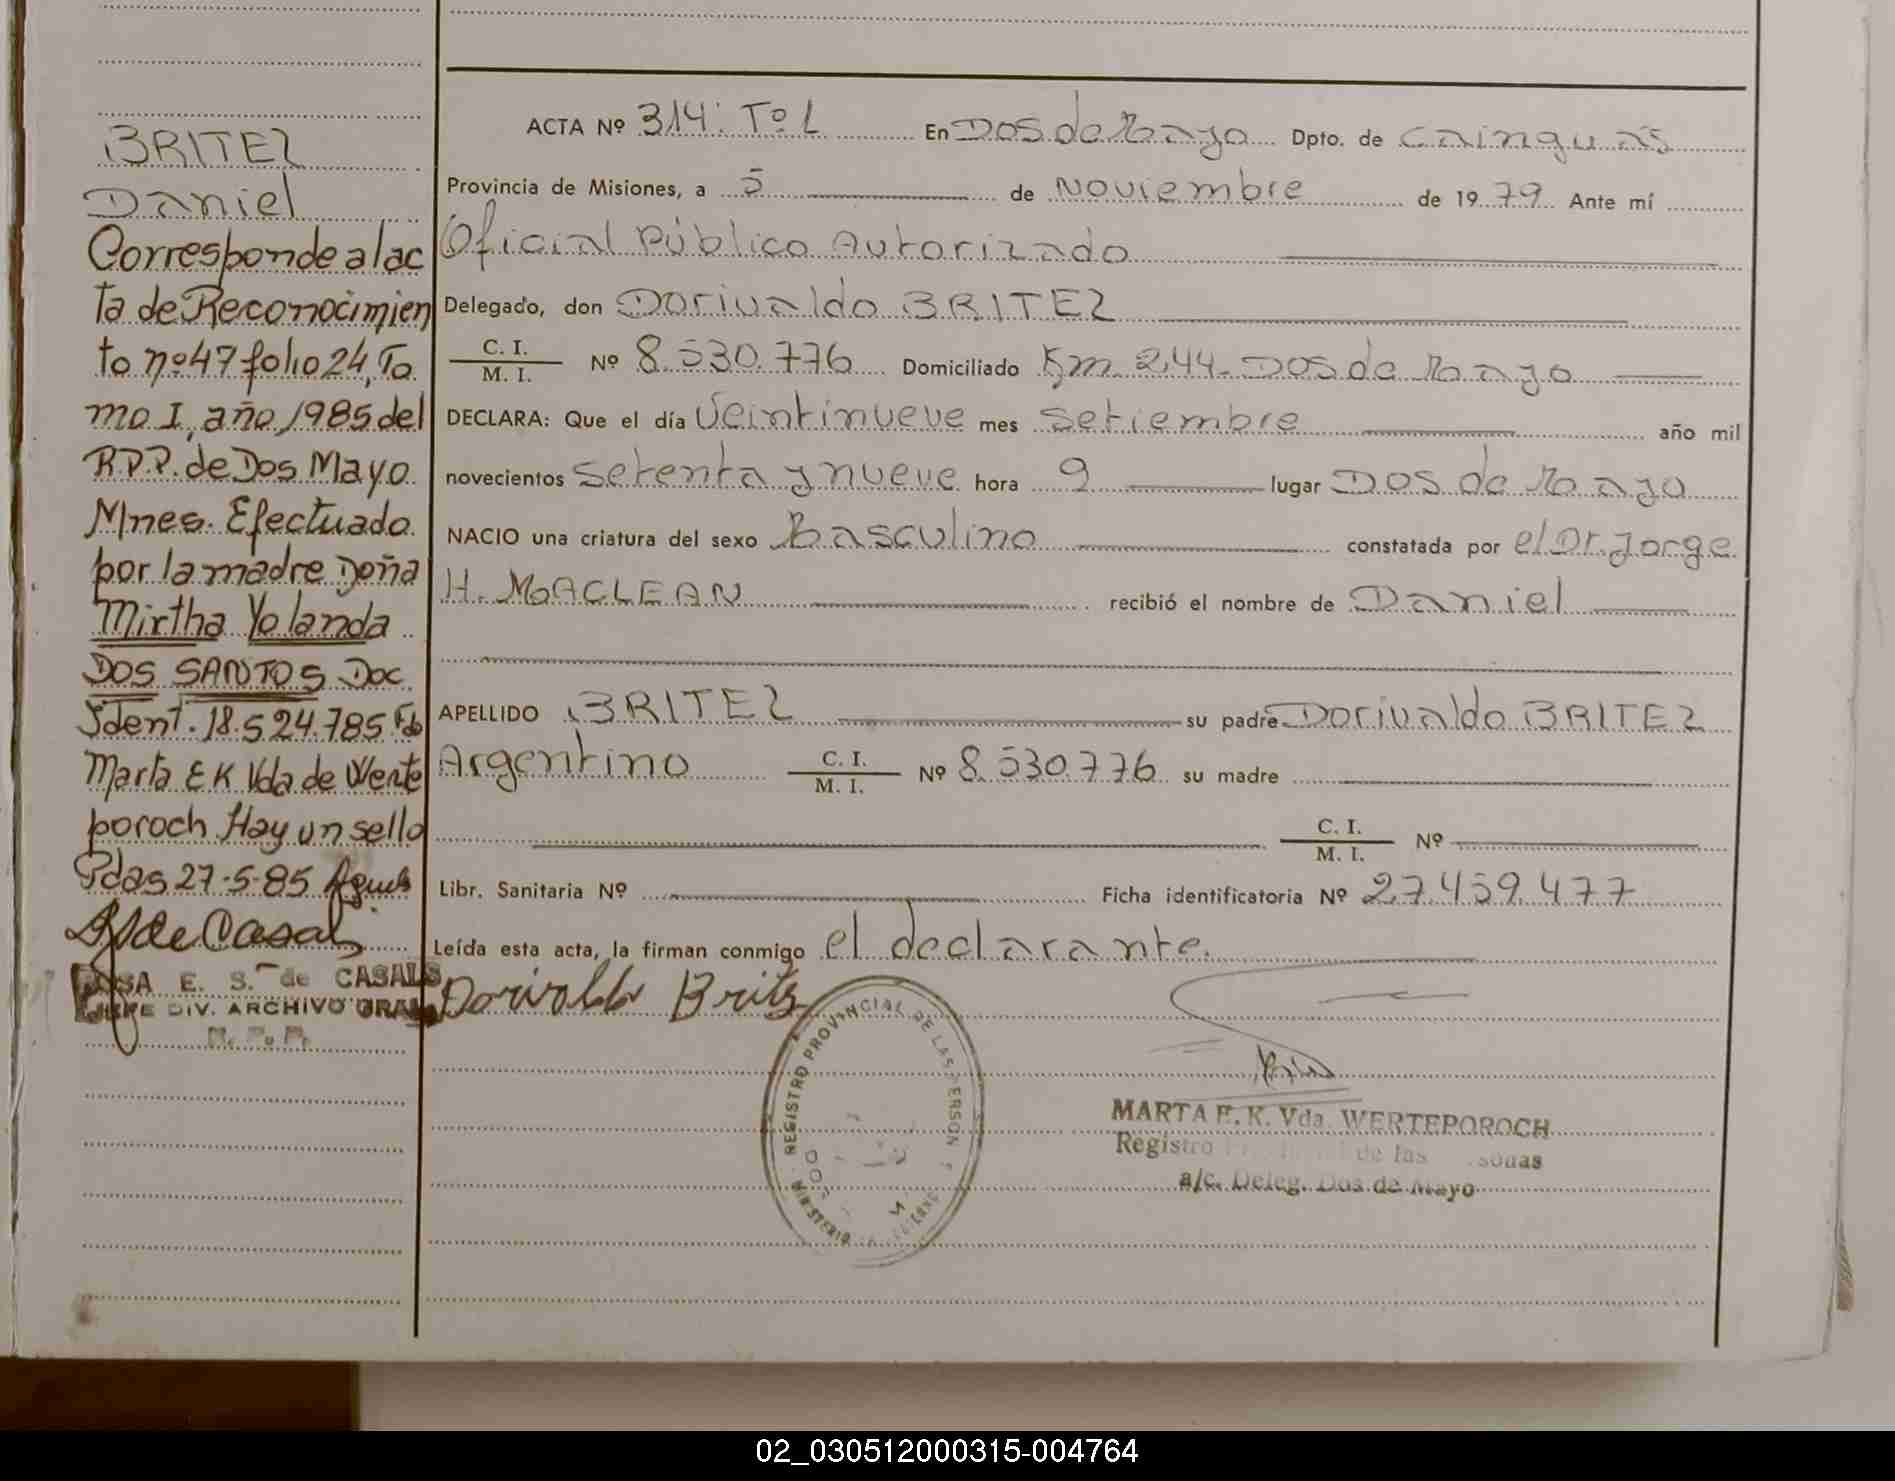 BRITEZ
Daniel
Corresponde al ac
ta de Reconocimien
to nº 47 folio 24, To
mo I, año 1985 del
R.P.P. de Dos Mayo
Mnes. Efectuado
por la madre Doña
Mirtha Yolanda
DOS SANTOS Doc
Ident. 18.524.785 Fdo
Marta E K Vda de Werte
poroch Hay un sello
Pdas 27-5-85
de Casals
ROSA E. S. de CASALS
JEFE DIV. ARCHIVO GRAL
R. P. P.
ACTA Nº 314 Tº L En Dos de Mayo Dpto. de Cainguás
Provincia de Misiones, a 5 de Noviembre de 19 79 Ante mí
Oficial Público Autorizado
Delegado, don Dorivaldo BRITEZ
C. I.
M. I. Nº 8.530.776 Domiciliado Km. 244. Dos de Mayo
DECLARA: Que el día Veintinueve mes Setiembre año mil
novecientos setenta y nueve hora 9 lugar Dos de Mayo
NACIO una criatura del sexo Masculino constatada por el Dr. Jorge
H. MACLEAN recibió el nombre de Daniel
APELLIDO BRITEZ su padre Dorivaldo BRITEZ
Argentino C. I.
M. I. Nº 8.530.776 su madre
C. I.
M. I. Nº
Libr. Sanitaria Nº Ficha identificatoria Nº 27.459.477
Leída esta acta, la firman conmigo el declarante.
Dorivaldo Britez
REGISTRO PROVINCIAL DE LAS PERSON
DOS
MINISTERIO
MARTA E. K. Vda. WERTEPOROCH
Registro de las
a/c. Deleg. Dos de Mayo
02_030512000315-004764